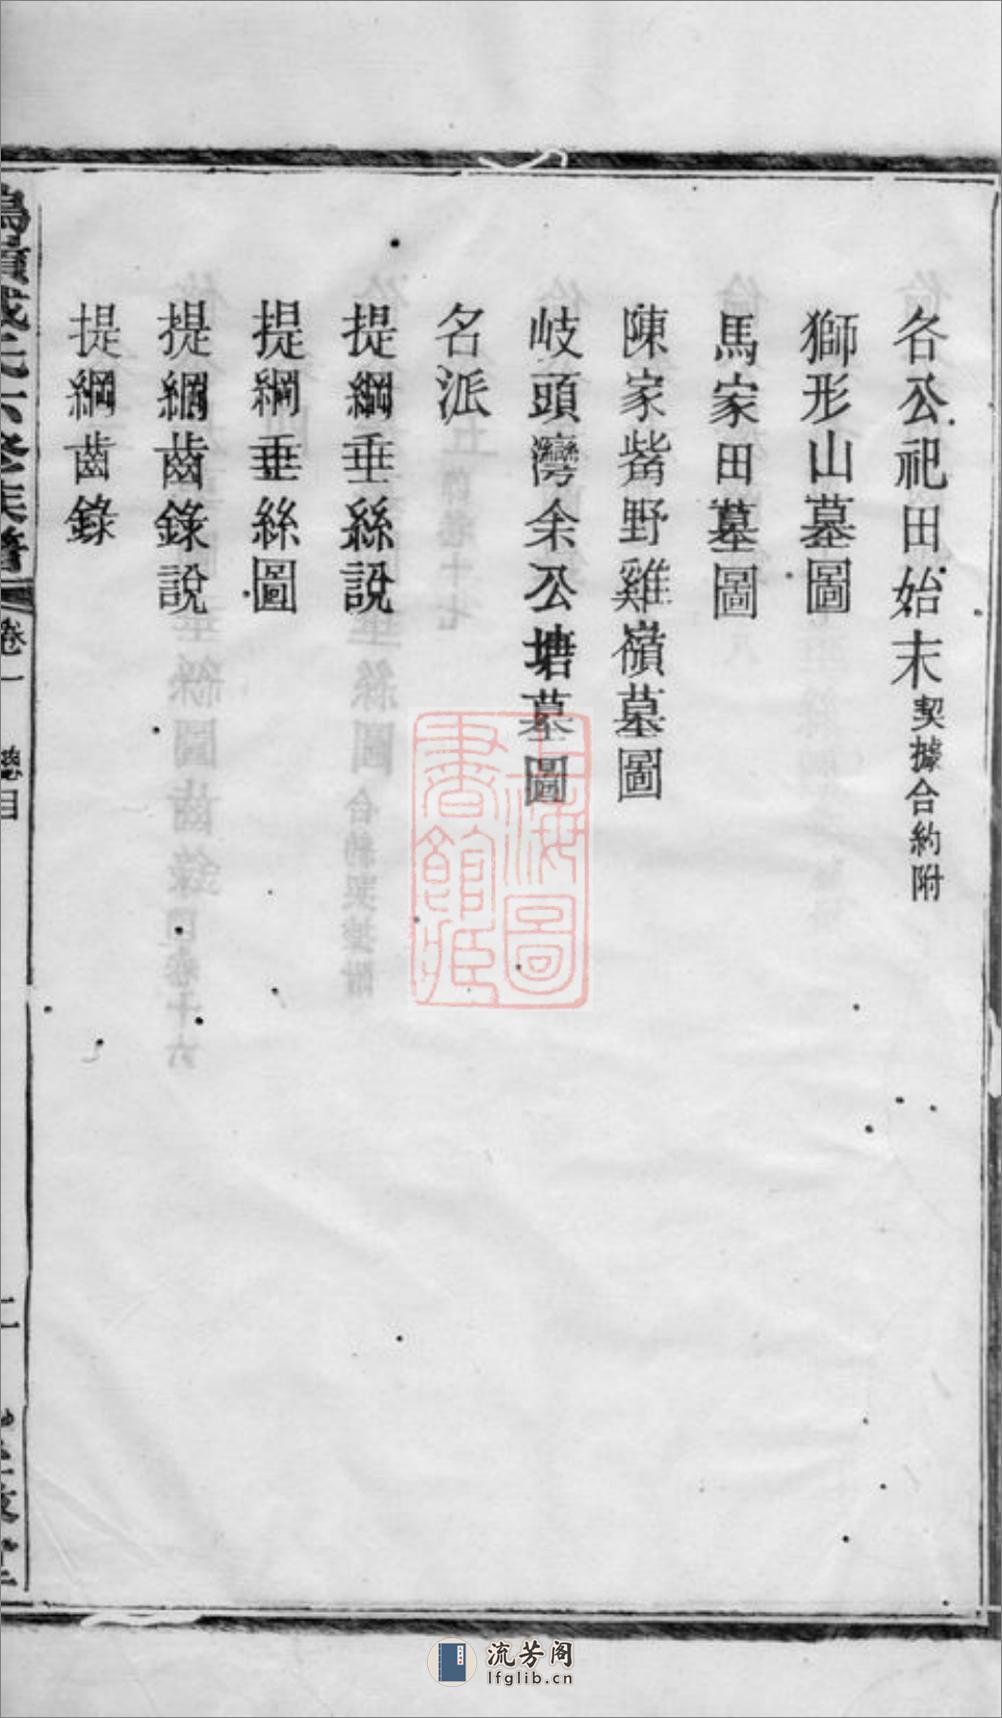 各公祀田始末契據合約附
獅形山墓圖
馬家田墓圖
陳家觜野雞嶺墓圖
岐頭灣余公塘墓圖
名派
提綱垂絲說
提綱垂絲圖
提綱齒錄說
提綱齒錄
卷一 總目
上海圖書館藏
流芳阁
lfglib.cn